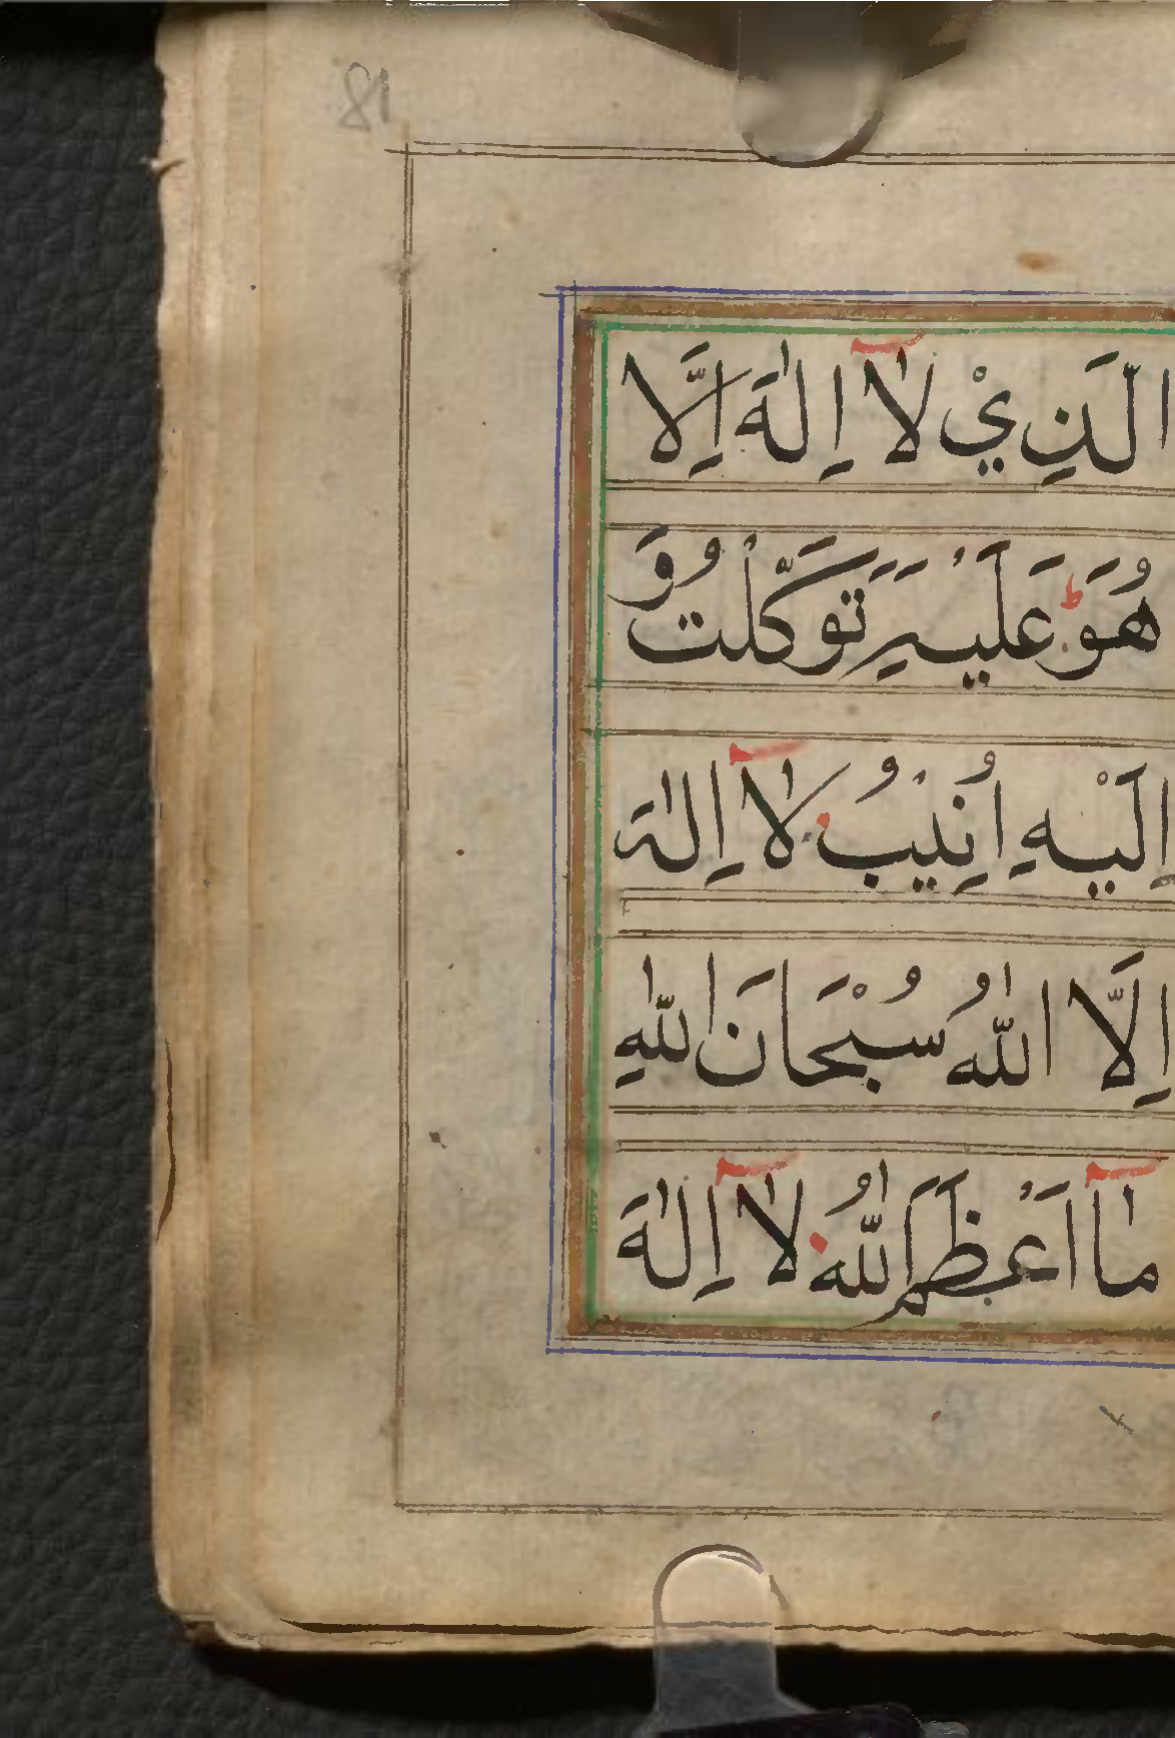 81
الَّذِيْ لَآ اِلٰهَ اِلَّا
هُوَ ط عَلَيْهِ تَوَكَّلْتُ وَ
اِلَيْهِ اُنِيْبُ لَآ اِلٰهَ
اِلَّا اللّٰهُ سُبْحَانَ اللّٰهِ
مَآ اَعْظَمَ اللّٰهُ لَآ اِلٰهَ